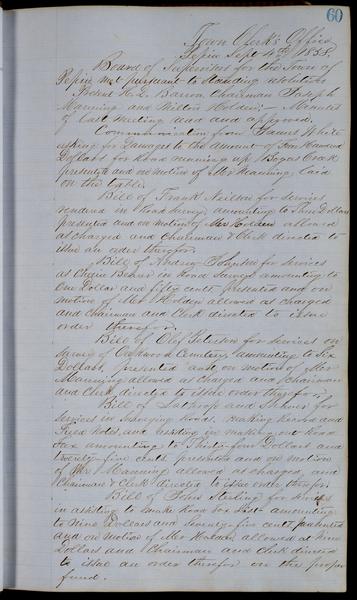 60
Town Clerk's Office
Pepin Sept 1888.
Board of Supervisors for the Town of
Pepin met pursuant to standing resolution
Present H. L. Barron Chairman Joseph
Manning and Milton Holden. Minutes
of last meeting read and approved.
Communication from White
asking for Damages to the amount of Hundred
Dollars for Road running up Bogus Creek
presented and on motion of Mr Manning laid
on the table.
Bill of Frank Neilson for services
rendered in Road Survey amounting to Dollars
presented and on motion of Mr Holden allowed
as charged and Chairman & Clerk directed to
issue an order therefor.
Bill of for services
as Chain Bearer in Road Survey amounting to
One Dollar and fifty cents presented and on
motion of Mr Holden allowed as charged
and Chairman and Clerk directed to issue
order therefor.
Bill of Olef Peterson for services on
survey of Oakwood Cemetery amounting to Six
Dollars, presented and on motion of Mr
Manning allowed as charged and Chairman
and Clerk directed to issue order therefor.
Bill of Lathrop and for
services in Surveying Roads, making and
Field Notes and assisting in making out Road
Tax amounting to Thirty-four Dollars and
twenty-five cents presented and on motion
of Mr. Manning allowed as charged, and
Chairman & Clerk directed to issue order therefor.
Bill of John Sterling for services
in assisting to make Road tax list amounting
to Nine Dollars and Seventy-five cents presented
and on motion of Mr Holden allowed at Nine
Dollars and Chairman and Clerk directed
to issue an order therefor on the proper
fund.